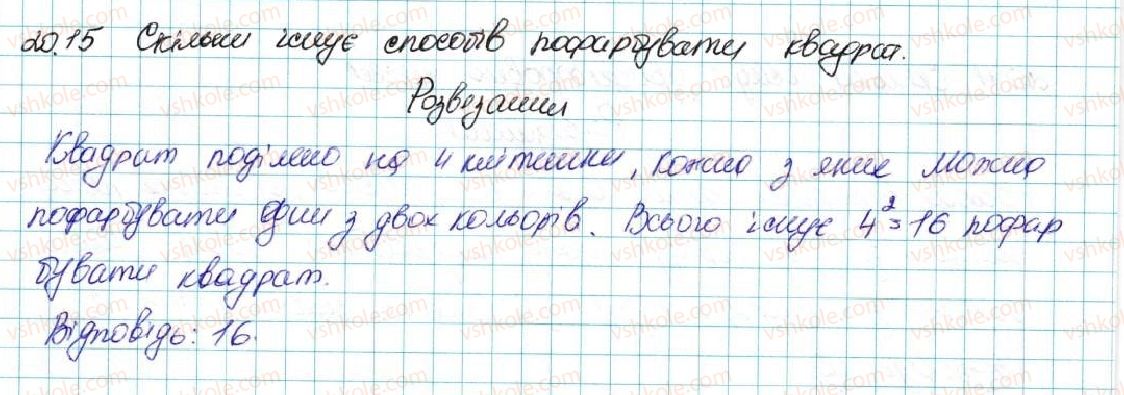 20.15 Скільки існує способів пофарбувати квадрат.
Розвезання
Квадрат поділено на 4 клітинки, кожна з яких можна
пофарбувати один з двох кольорів. Всього існує 4²=16 пофар
бувати квадрат.
Відповідь: 16.